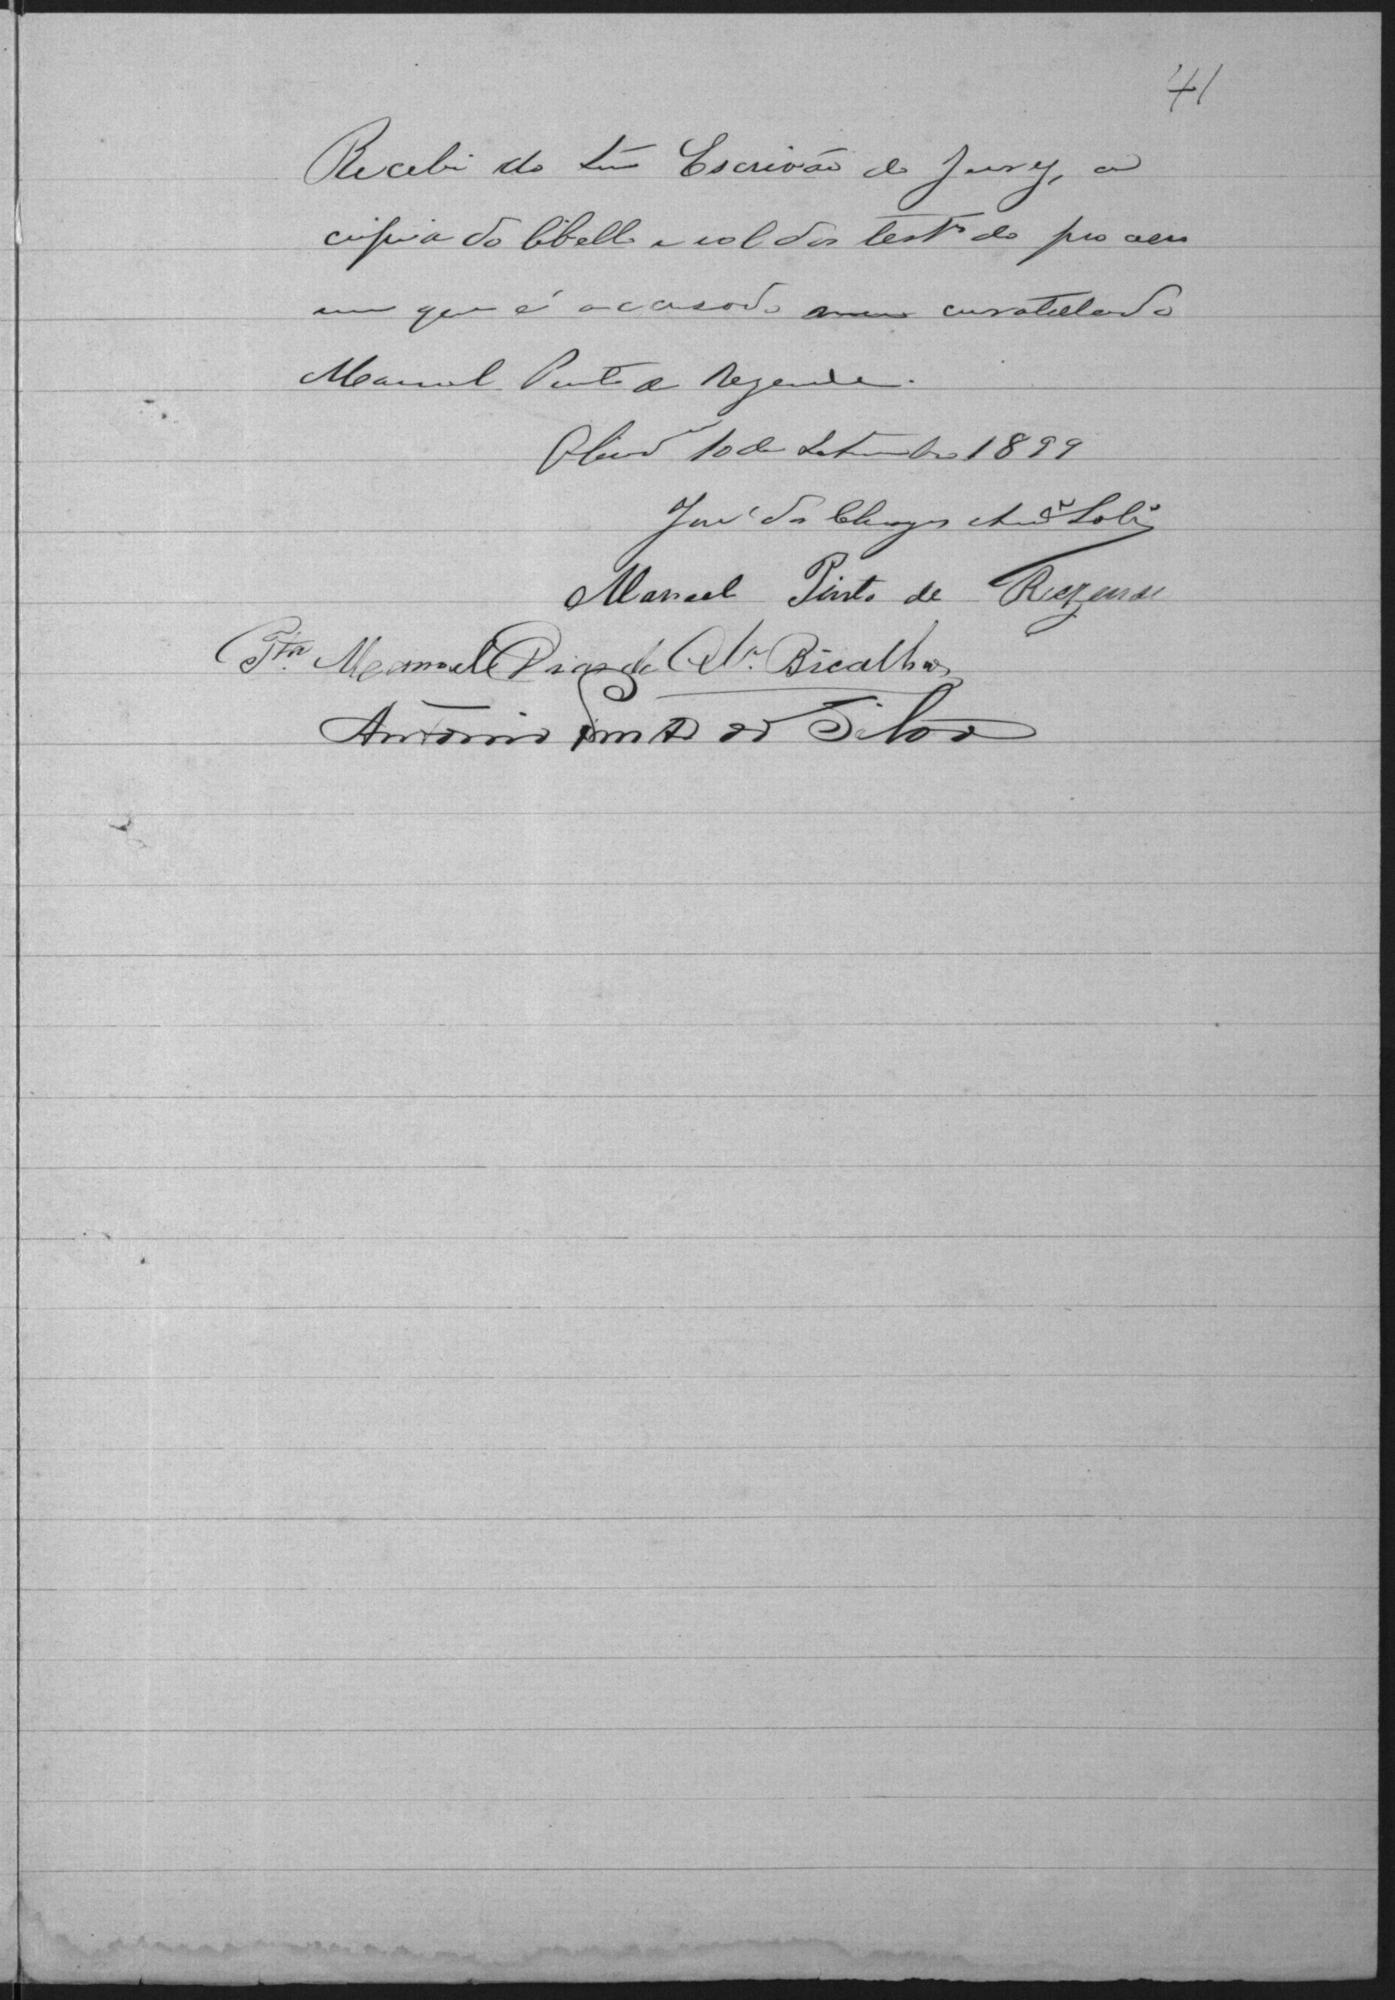 41
Recebi do Escrivão do Jury, a
copia do libello e rol das testas do processo
em que é accusado meu curatelado
Manoel Pinto de Rezende.
10 de Setembro 1899
José das Chagas Andr.e Sobr.o
Manoel Pinto de Rezende
Tta. Manoel Dias de Olv.ra Bicalho
Antonio Pinto da Silva